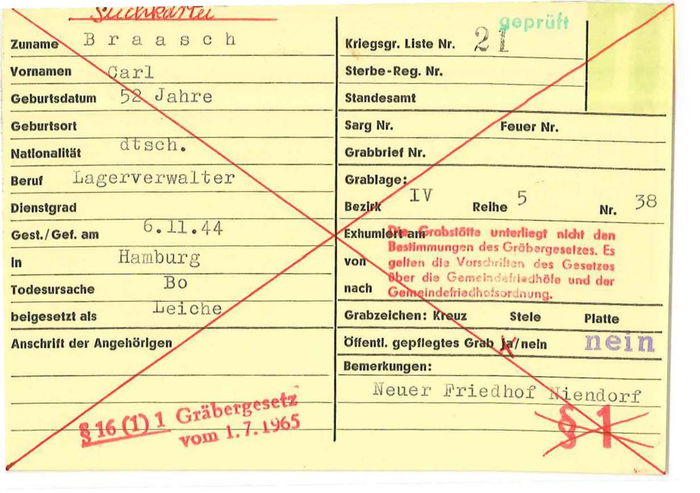 Suchkartei
geprüft
Zuname Braasch
Vornamen Carl
Geburtsdatum 52 Jahre
Geburtsort
Nationalität dtsch.
Beruf Lagerverwalter
Dienstgrad
Gest./Gef. am 6.11.44
in Hamburg
Todesursache Bo
beigesetzt als Leiche
Anschrift der Angehörigen
§ 16 (1) 1 Gräbergesetz
vom 1.7.1965
Kriegsgr. Liste Nr. 21
Sterbe-Reg. Nr.
Standesamt
Sarg Nr. Feuer Nr.
Grabbrief Nr.
Grablage:
Bezirk IV Reihe 5 Nr. 38
Exhumiert am
von
nach
Die Grabstätte unterliegt nicht den
Bestimmungen des Gräbergesetzes. Es
gelten die Vorschriften des Gesetzes
über die Gemeindefriedhöfe und der
Gemeindefriedhofsordnung.
Grabzeichen: Kreuz Stele Platte
Öffentl. gepflegtes Grab ja/nein nein
Bemerkungen:
Neuer Friedhof Niendorf
§ 1